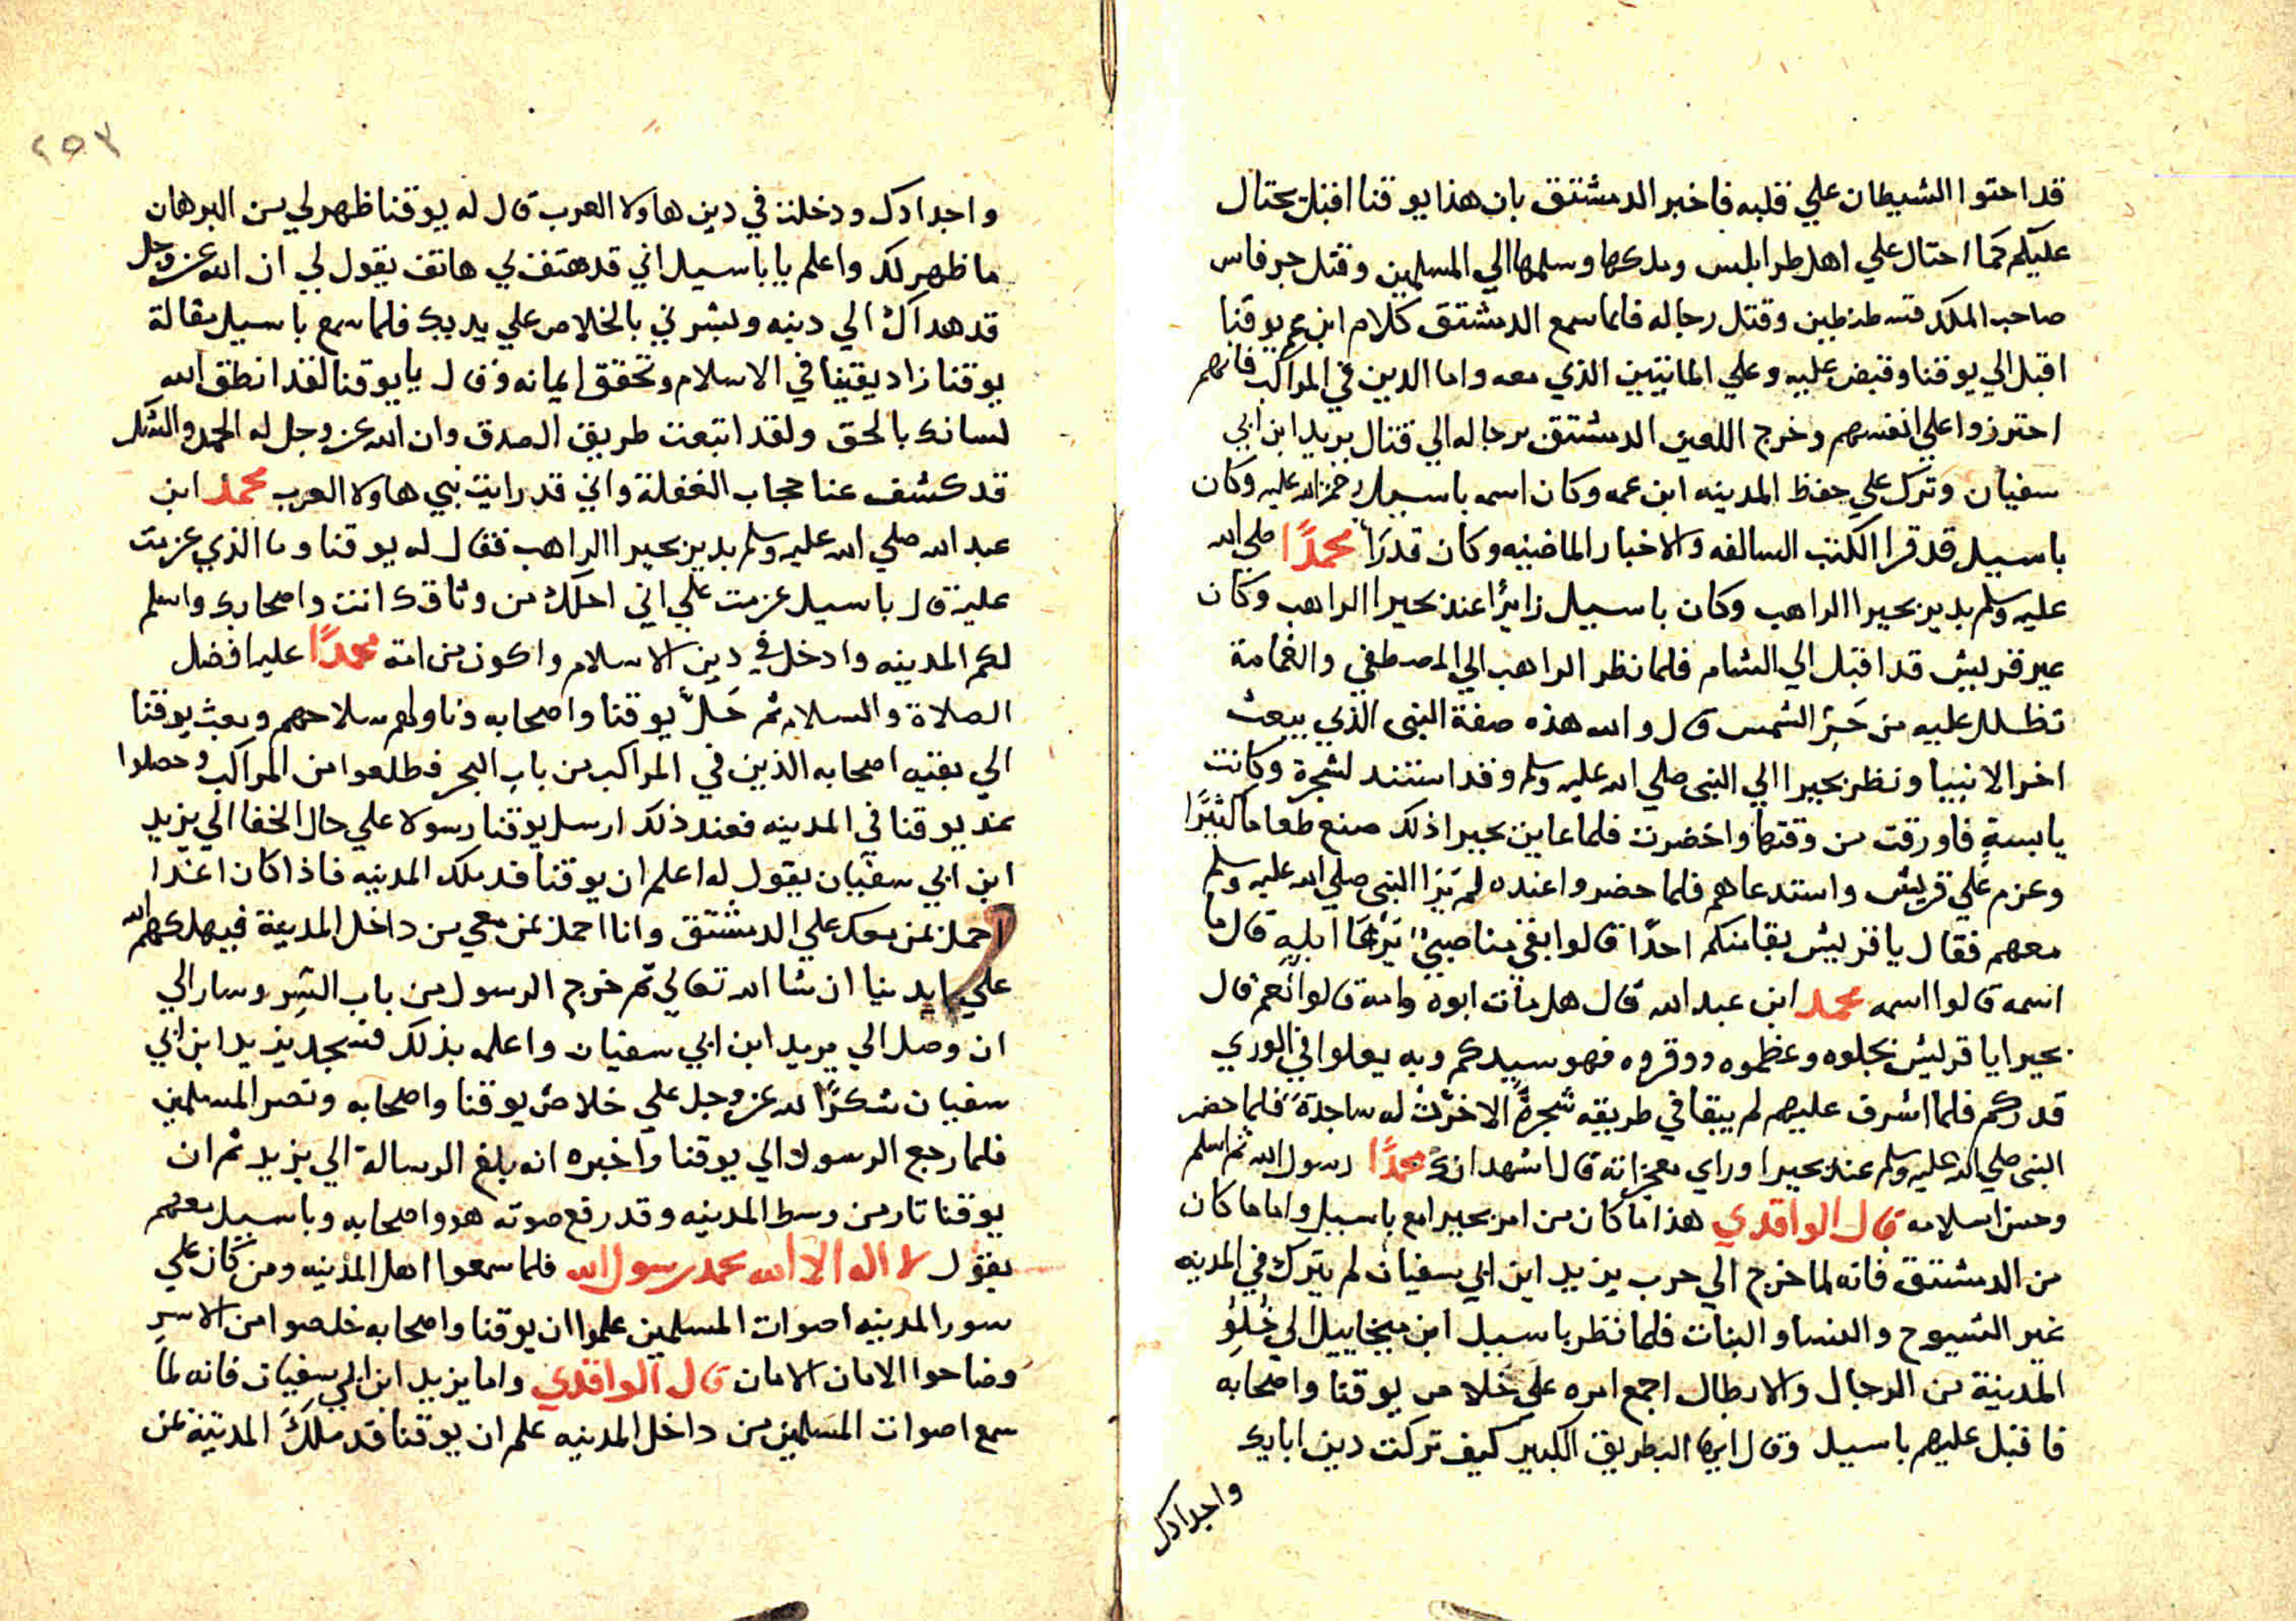 قد احتوا الشيطان علي قلبه فاخبر الدمشتق بان هذا يوقنا اقبل يحتال
عليكم كما احتال علي اهل طرابلس وملكها وسلمها الي المسلمين وقتل جرفاس
صاحب الملك قسطنطين وقتل رجاله فلما سمع الدمشتق كلام ابن عم يوقنا
اقبل الي يوقنا وقبض عليه وعلي المايتين الذي معه واما الدين في المراكب فانهم
احترزوا علي انفسهم وخرج اللعين الدمشتق برجاله الي قتال يزيد ابن ابي
سفيان وترك علي حفظ المدينه ابن عمه وكان اسمه باسيل رحمة الله عليه وكان
باسيل قد قرا الكتب السالفه والاخبار الماضيه وكان قد رَاَ محمدًا صلي الله
عليه وسلم بدير بحيرا الراهب وكان باسيل زايرًا عند بحيرا الراهب وكان
عير قريش قد اقبل الي الشام فلما نظر الراهب الي المصطفي والغمامة
تظلل عليه من حَرِّ الشمس قال والله هذه صفة النبي الذي يبعث
اخر الانبيا ونظر بحيرا الي النبي صلي الله عليه وسلم وقد استند لشجرة وكانت
يابسةٍ فاورقت من وقتها واخضرت فلما عاين بحيرا ذلك صنع طعاما كثيرًا
وعزم علي قريش واستدعاهم فلما حضروا عنده لم يَرَا النبي صلي الله عليه وسلم
معهم فقال يا قريش بقا منكم احدًا قالوا بقي منا صبيٌ يَرْعَا ابله قال ما
اسمه قالوا اسمه محمد ابن عبد الله قال هل مات ابوه وامه قالوا نعم قال
بحيرا يا قريش بجلوه وعظموه ووقروه فهو سيدكم وبه يعلوا في الوري
قدركم فلما اشرف عليهم لم يبقا في طريقه شجرةً الا خرّت له ساجدةً فلما حضر
النبي صلي الله عليه وسلم عند بحيرا وراي معجزاته قال اشهد انك محمدًا رسول الله ثم اسلم
وحسن اسلامه قال الواقدي هذا ما كان من امر بحيرا مع باسيل واما ما كان
من الدمشتق فانه لما خرج الي حرب يزيد ابن ابي سفيان لم يترك في المدينه
غير الشيوح والنسا والبنات فلما نظر باسيل ابن ميخاييل الي خُلوِّ
المدينة من الرجال والابطال اجمع امره علي خلاص يوقنا واصحابه
فاقبل عليهم باسيل وقال ايها البطريق الكبير كيف تركت دين ابايك
واجدادك
٢٥٣
واجدادك ودخلت في دين هاولا العرب قال له يوقنا ظهر لي من البرهان
ما ظهر لك واعلم يا باسيل اني قد هتف لي هاتف يقول لي ان الله عز وجل
قد هداك الي دينه وبشرني بالخلاص علي يديك فلما سمع باسيل مقالة
يوقنا زاد يقينا في الاسلام وتحقق ايمانه وقال يا يوقنا لقد انطق الله
لسانك بالحق ولقد اتبعت طريق الصدق وان الله عز وجل له الحمد والشكر
قد كشف عنا حجاب الغفلة واني قد رايت نبي هاولا العرب محمد ابن
عبد الله صلي الله عليه وسلم بدير بحيرا الراهب فقال له يوقنا وما الذي عزمت
عليه قال باسيل عزمت علي اني احلك من وثاقك انت واصحابك واسلم
لكم المدينه وادخل في دين الاسلام واكون من امة محمدًا عليه افضل
الصلاة والسلام ثم حَلَّ يوقنا واصحابه وناولهم سلاحهم وبعث يوقنا
الي بقيه اصحابه الذين في المراكب من باب البحر فطلعوا من المراكب وحصلوا
عند يوقنا في المدينه فعند ذلك ارسل يوقنا رسولا علي حال الخفا الي يزيد
ابن ابي سفيان يقول له اعلم ان يوقنا قد ملك المدينه فاذا كان اغدا
احمل بمن معك علي الدمشتق وانا احمل بمن معي من داخل المدينة فيهلكهم الله
علي ايدينا ان شا الله تعالي ثم خرج الرسول من باب السّر وسار الي
ان وصل الي يزيد ابن ابي سفيان واعلمه بذلك فسجد يزيد ابن ابي
سفيان شكرًا لله عز وجل علي خلاص يوقنا واصحابه ونصر المسلمين
فلما رجع الرسول الي يوقنا واخبره انه بلغ الرسالة الي يزيد ثم ان
يوقنا ثار من وسط المدينه وقد رفع صوته هو واصحابه وباسيل معهم
يقول لا اله الا الله محمد رسول الله فلما سمعوا اهل المدينه ومن كان علي
سور المدينه اصوات المسلمين علموا ان يوقنا واصحابه خلصوا من الاسر
وصاحوا الامان الامان قال الواقدي واما يزيد ابن ابي سفيان فانه لما
سمع اصوات المسلمين من داخل المدينه علم ان يوقنا قد ملكَ المدينة عن